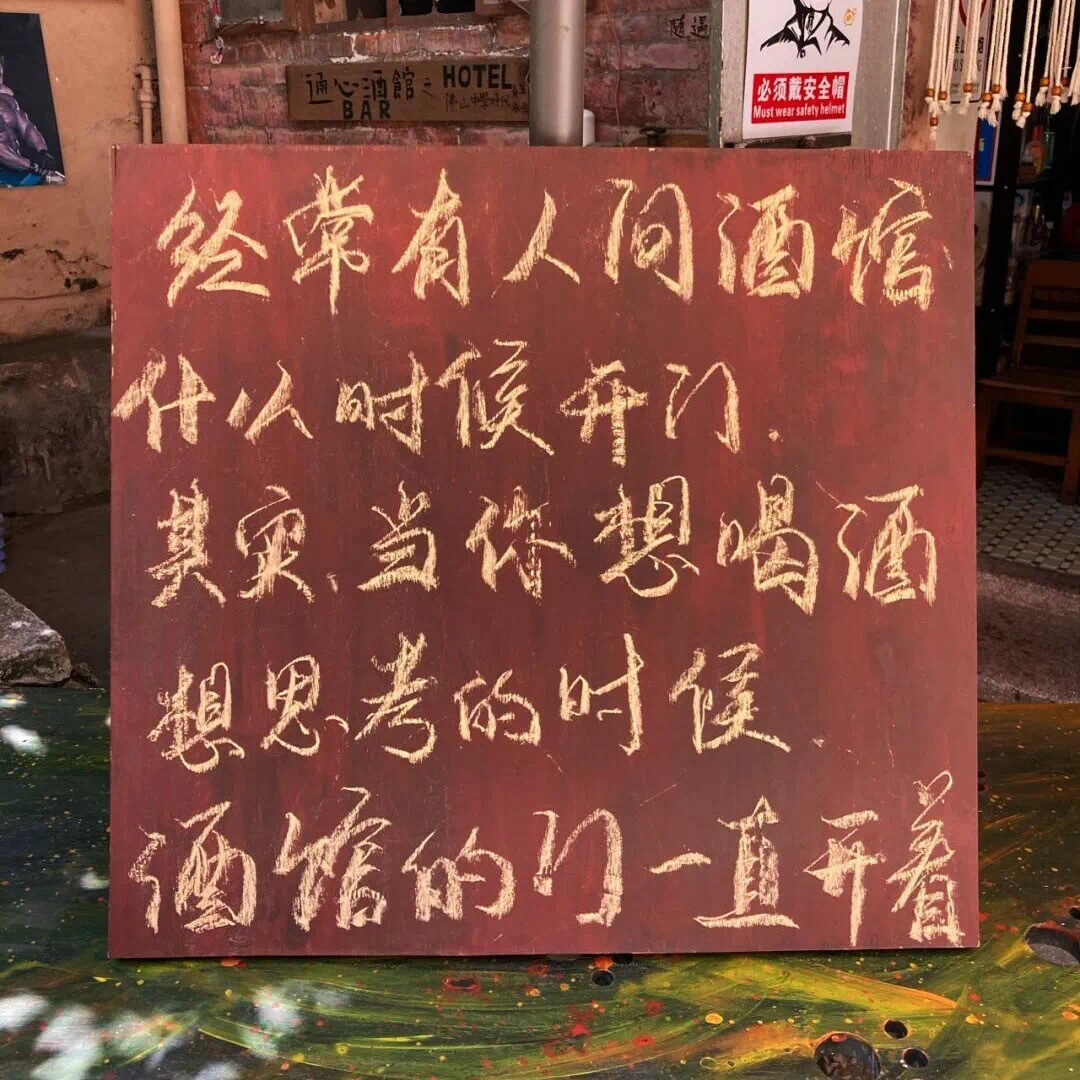 通心酒館之 HOTEL
BAR
随遇
必须戴安全帽
Must wear safety helmet
经常有人问酒馆
什么时候开门.
其实、当你想喝酒
想思考的时候.
酒馆的门一直开着